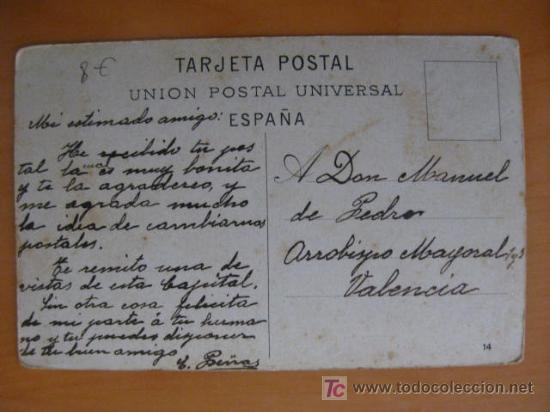 8€
TARJETA POSTAL
UNION POSTAL UNIVERSAL
ESPAÑA
Mi estimado amigo:
He recibido tu pos
tal la cual es muy bonita
y te la agradezco, y
me agrada mucho
la idea de cambiarnos
postales.
Te remito una de
vistas de esta Capital.
Sin otra cosa felicita
de mi parte á tu herma
no y tu puedes disponer
de tu buen amigo
A Don Manuel
de Pedro
Arrobispo Mayoral
Valencia
14
TC
www.todocoleccion.net